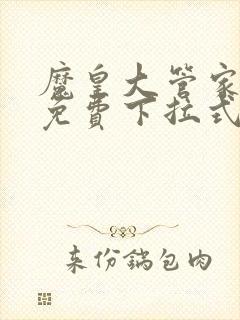 魔皇大管家
免費下拉式
来份鍋包肉